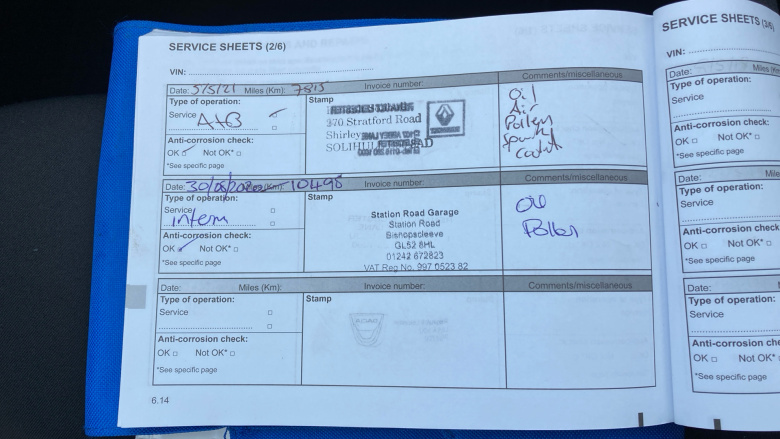 SERVICE SHEETS (2/6)
VIN:
Date: 5/5/21 Miles (Km): 7815 Invoice number: Comments/miscellaneous
Type of operation:
Service
A+B
Anti-corrosion check:
OK Not OK*
*See specific page
Stamp
370 Stratford Road
Shirley
SOLIHULL
Oil
Air
Pollen
Date: 10498 Invoice number: Comments/miscellaneous
Type of operation:
Service
Interm
Anti-corrosion check:
OK Not OK*
*See specific page
Stamp
Station Road Garage
Station Road
Bishopscleeve
GL52 8HL
01242 672823
VAT Reg No. 997 0523 82
Oil
Pollen
Date: Miles (Km): Invoice number: Comments/miscellaneous
Type of operation:
Service
Anti-corrosion check:
OK Not OK*
*See specific page
Stamp
DACIA
6.14
SERVICE SHEETS (3/6)
VIN:
Date: Miles (Km
Type of operation:
Service
Anti-corrosion check:
OK Not OK*
*See specific page
Date: Mile
Type of operation:
Service
Anti-corrosion check
OK Not OK*
*See specific page
Date:
Type of operation:
Service
Anti-corrosion che
OK Not OK*
*See specific page